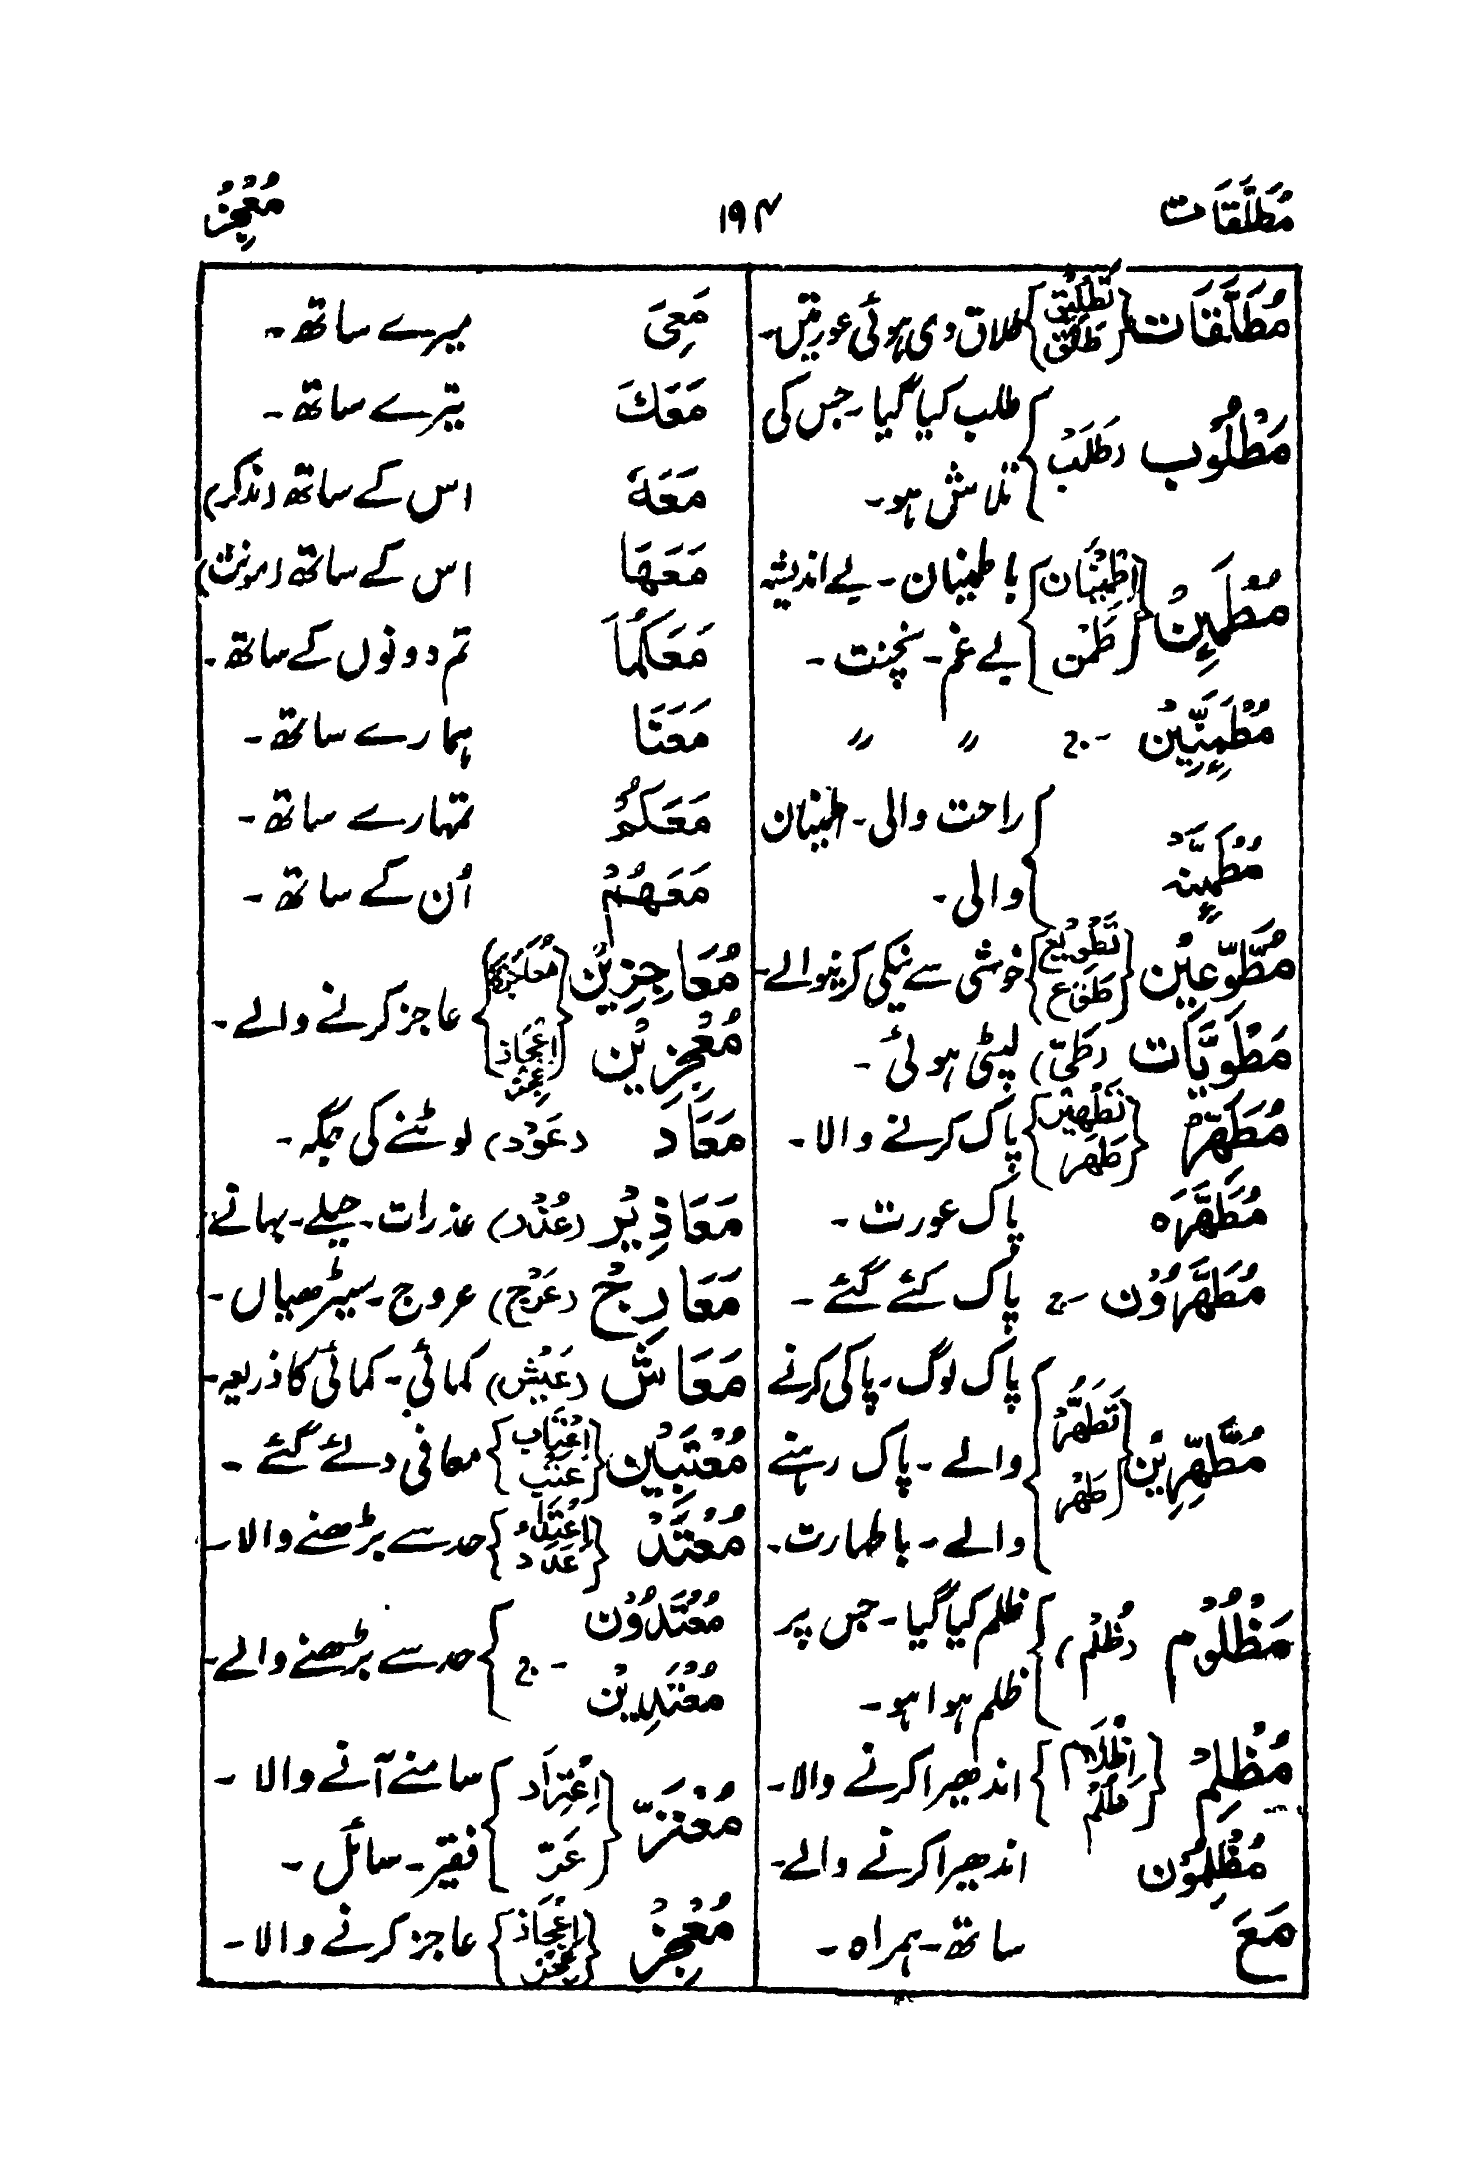 مُطَلَّقَات ۱۹۴ مُعْجِزُ
مُطَلَّقَات {تَطْلِيْق طَلَّقَ} طلاق دی ہوئی عورتیں۔
مَطْلُوْب (طَلَب) {طلب کیا گیا۔ جس کی
تلاش ہو۔
مُطْمَئِنٌ {اِطْمِيْنَان طَمْن} با طمینان۔ بے اندیشہ
بے غم۔ نچنت۔
مُطْمَئِنِّيْن ۔ ج ״ ״
مُطْمَئِنَّہ {راحت والی۔ اطمینان
والی۔
مُطَّوِّعِيْن {تَطْوِيْع طَوْع} خوشی سے نیکی کرنیوالے۔
مَطْوِيَّات (طَيّ) لپٹی ہوئی۔
مُطَهِّرٌ {تَطْهِيْر طَهَر} پاک کرنے والا۔
مُطَهَّرَہ پاک عورت۔
مُطَهَّرُوْن ۔ ج پاک کئے گئے۔
مُطَّهِّرِيْن {تَطَهُّر طَهَر} پاک لوگ۔ پاکی کرنے
والے۔ پاک رہنے
والے۔ با طہارت۔
مَظْلُوْم (ظُلْم) {ظلم کیا گیا۔ جس پر
ظلم ہوا ہو۔
مُظْلِمٌ {اِظْلَام ظُلْم} اندھیرا کرنے والا۔
مُظْلِمُوْن اندھیرا کرنے والے۔
مَعَ ساتھ۔ ہمراہ۔
مَعِیَ میرے ساتھ۔
مَعَكَ تیرے ساتھ۔
مَعَهٗ اس کے ساتھ (مذکر)
مَعَهَا اس کے ساتھ (مونث)
مَعَكُمَا تم دونوں کے ساتھ۔
مَعَنَا ہمارے ساتھ۔
مَعَكُمْ تمہارے ساتھ۔
مَعَهُمْ اُن کے ساتھ۔
مُعَاجِزِيْن
مُعْجِزِيْن {مُعَاجَزَة اِعْجَاز عِجْز} عاجز کرنے والے۔
مَعَاد (عَوْد) لوٹنے کی جگہ۔
مَعَاذِيْر (عُذْر) عذرات۔ حیلے۔ بہانے
مَعَارِجُ (عَرَج) عروج۔ سیڑھیاں۔
مَعَاش (عَيْش) کمائی۔ کمائی کا ذریعہ۔
مُعْتَبِيْن {اِعْتَاب عَتَب} معافی دئے گئے۔
مُعْتَدٍ {اِعْتِدَاء عَدَد} حد سے بڑھنے والا۔
مُعْتَدُوْن
مُعْتَدِيْن ۔ ج {حد سے بڑھنے والے۔
مُعْتَرّ {اِعْتِرَاد عَرّ} سامنے آنے والا۔
فقیر۔ سائل۔
مُعْجِزٌ {اِعْجَاز عِجْز} عاجز کرنے والا۔